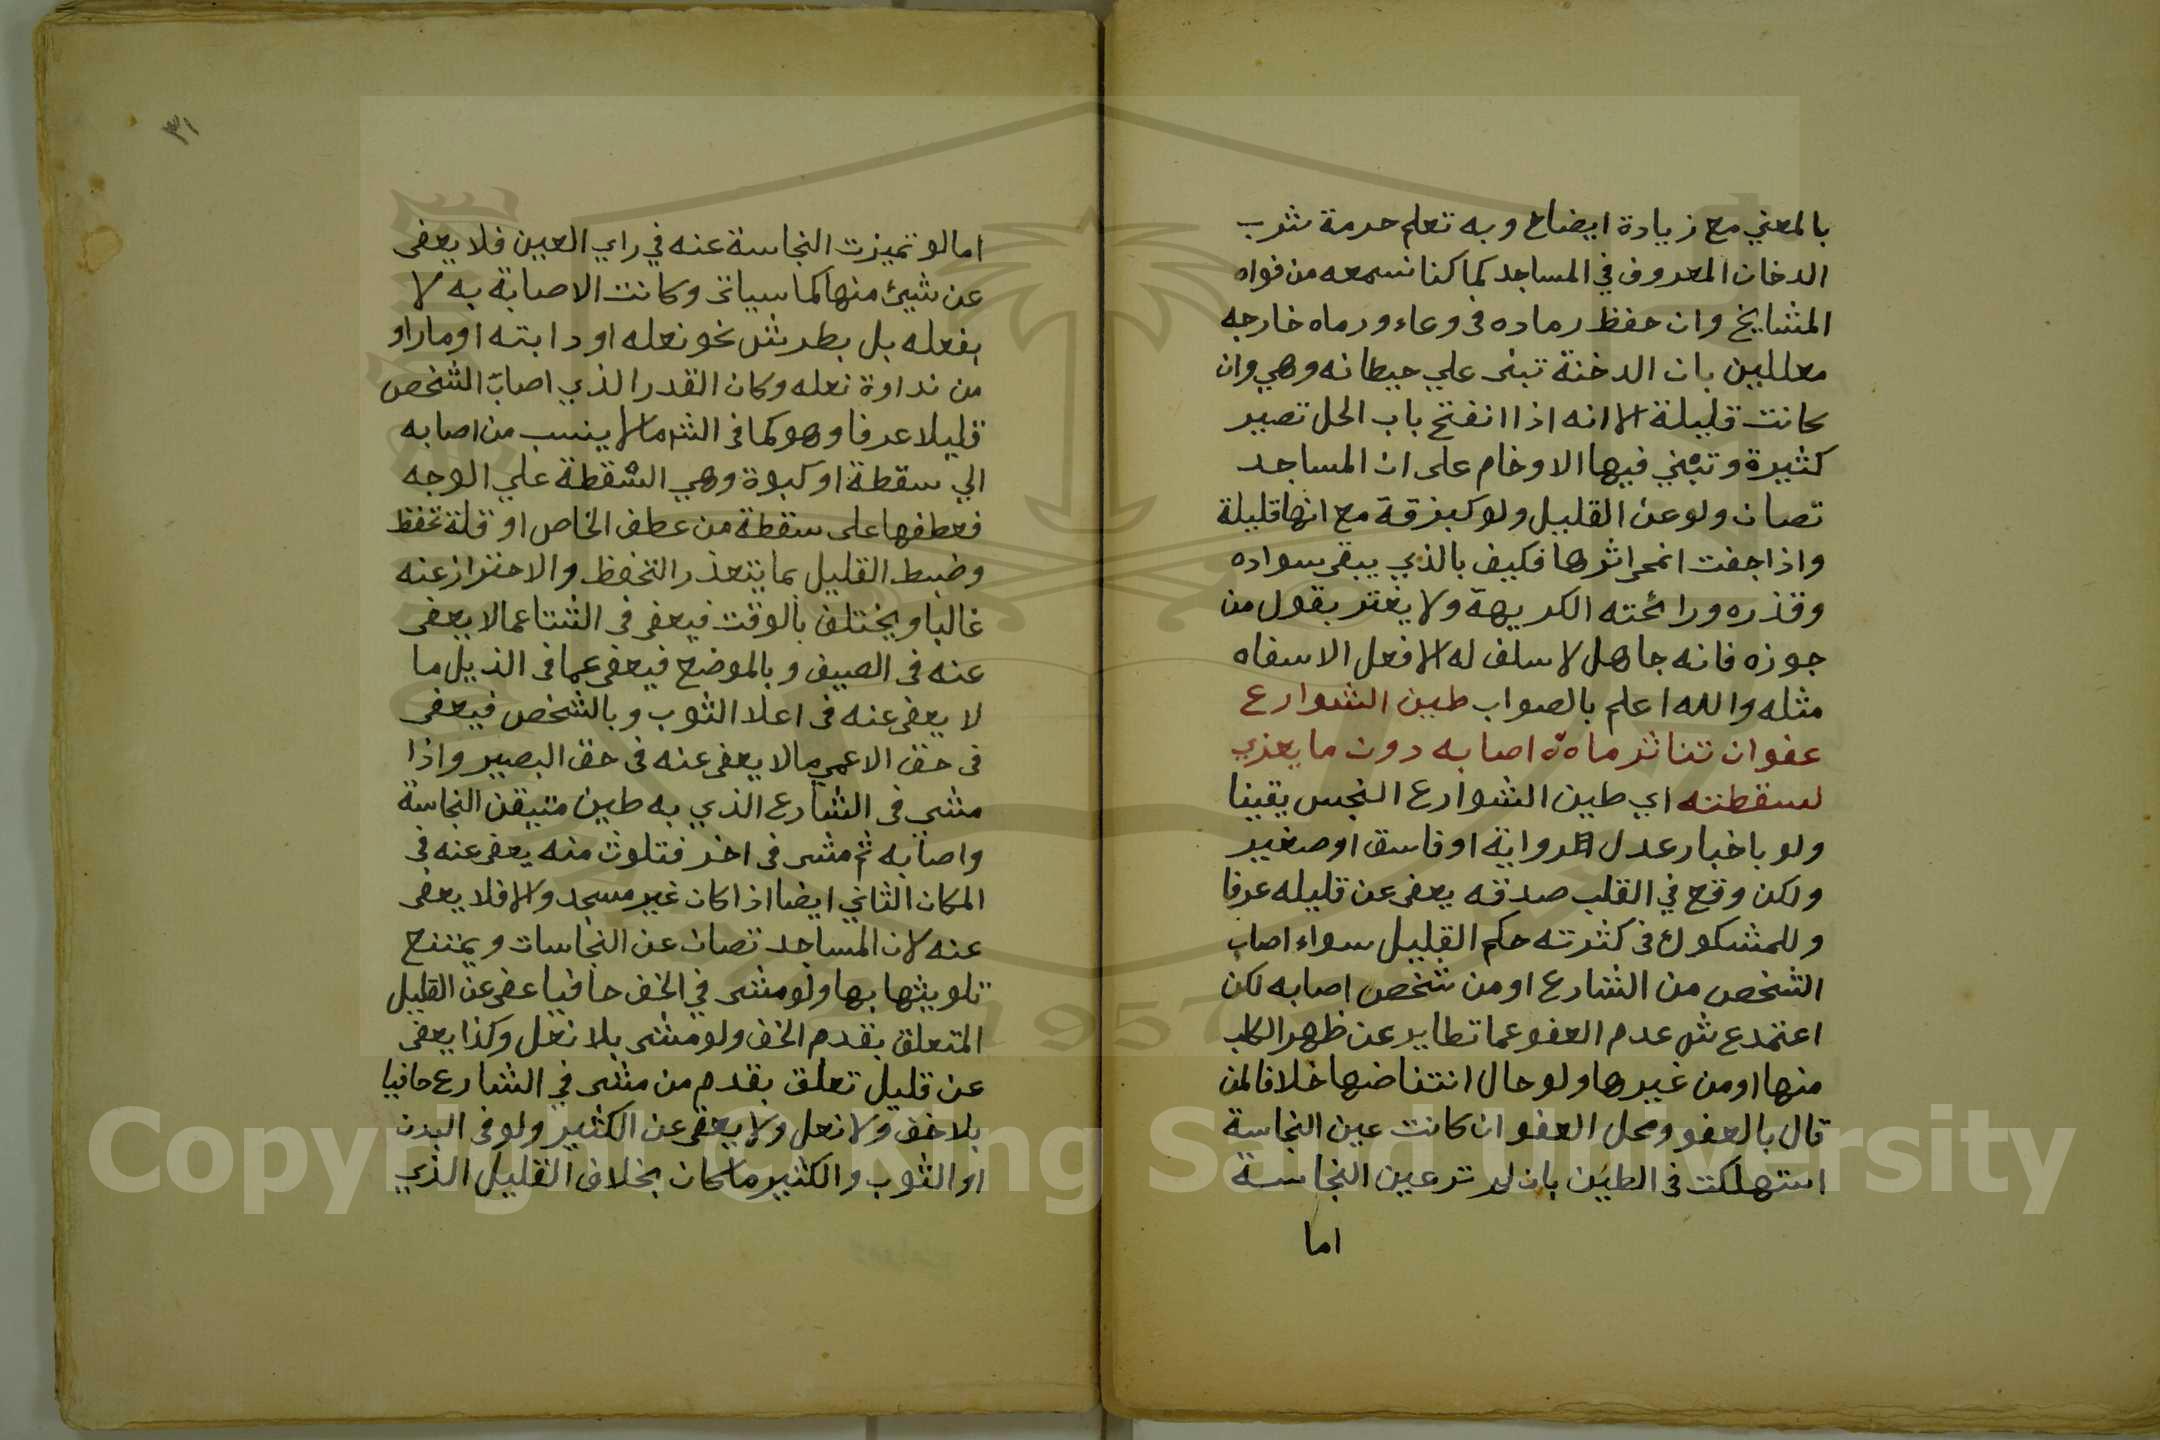 بالمعني مع زيادة ايضاح وبه تعلم حرمة شرب
الدخان المعروف في المساجد كما كنا نسمعه من فواه
المشايخ وان حفظ رماده فى وعاء ورماه خارجه
معللين بان الدخنة تبنى علي حيطانه وهي وان
كانت قليلة الا انه اذا انفتح باب الحل تصير
كثيرة وتبني فيها الاوخام على ان المساجد
تصان ولو عن القليل ولو كبزقة مع انها قليلة
واذا جفت انمحى اثرها فكيف بالذي يبقى سواده
وقذره ورائحته الكريهة ولا يغتر بقول من
جوزه فانه جاهل لا سلف له الا فعل الاسفاه
مثله والله اعلم بالصواب طين الشوارع
عفو ان تناثر ماه اصابه دون ما يعزي
لسقطته اي طين الشوارع النجس يقينا
ولو باخبار عدل الرواية او فاسق او صغير
ولكن وقع في القلب صدقه يعفى عن قليله عرفا
وللمشكوك فى كثرته حكم القليل سواء اصاب
الشخص من الشارع او من شخص اصابه لكن
اعتمد ع ش عدم العفو عما تطاير عن ظهر الكلب
منها او من غيرها ولو حال انتفاضها خلافا لمن
قال بالعفو ومحل العفو ان كانت عين النجاسة
استهلكت فى الطين بان لم تر عين النجاسة
اما
٣١
اما لو تميزت النجاسة عنه في راي العين فلا يعفى
عن شيئ منها كما سياتى وكانت الاصابة به لا
بفعله بل بطرش نحو نعله او دابته او مار او
من نداوة نعله وكان القدر الذي اصاب الشخص
قليلا عرفا وهو كما فى الشر ما لا ينسب من اصابه
الي سقطة او كبوة وهي السقطة علي الوجه
فعطفها على سقطة من عطف الخاص او قلة تحفظ
وضبط القليل بما يتعذر التحفظ والاحتراز عنه
غالبا ويختلف بالوقت فيعفى فى الشتا عما لا يعفى
عنه فى الصيف وبالموضع فيعفى عما فى الذيل ما
لا يعفى عنه فى اعلا الثوب وبالشخص فيعفى
فى حق الاعمي ما لا يعفى عنه فى حق البصير واذا
مشى فى الشارع الذي به طين متيقن النجاسة
واصابه ثم مشى فى اخر فتلوث منه يعفى عنه فى
المكان الثاني ايضا اذا كان غير مسجد والا فلا يعفى
عنه لان المساجد تصان عن النجاسات ويمتنع
تلويثها بها ولو مشى في الخف حافيا عفى عن القليل
المتعلق بقدم الخف ولو مشى بلا نعل وكذا يعفى
عن قليل تعلق بقدم من مشى في الشارع حافيا
بلا خف ولا نعل ولا يعفى عن الكثير ولو فى البدن
او الثوب والكثير ما كان بخلاف القليل الذي
Copyright © King Saud University
1957